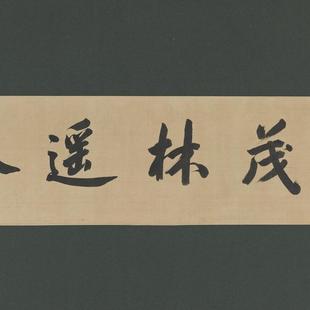 茂林遥